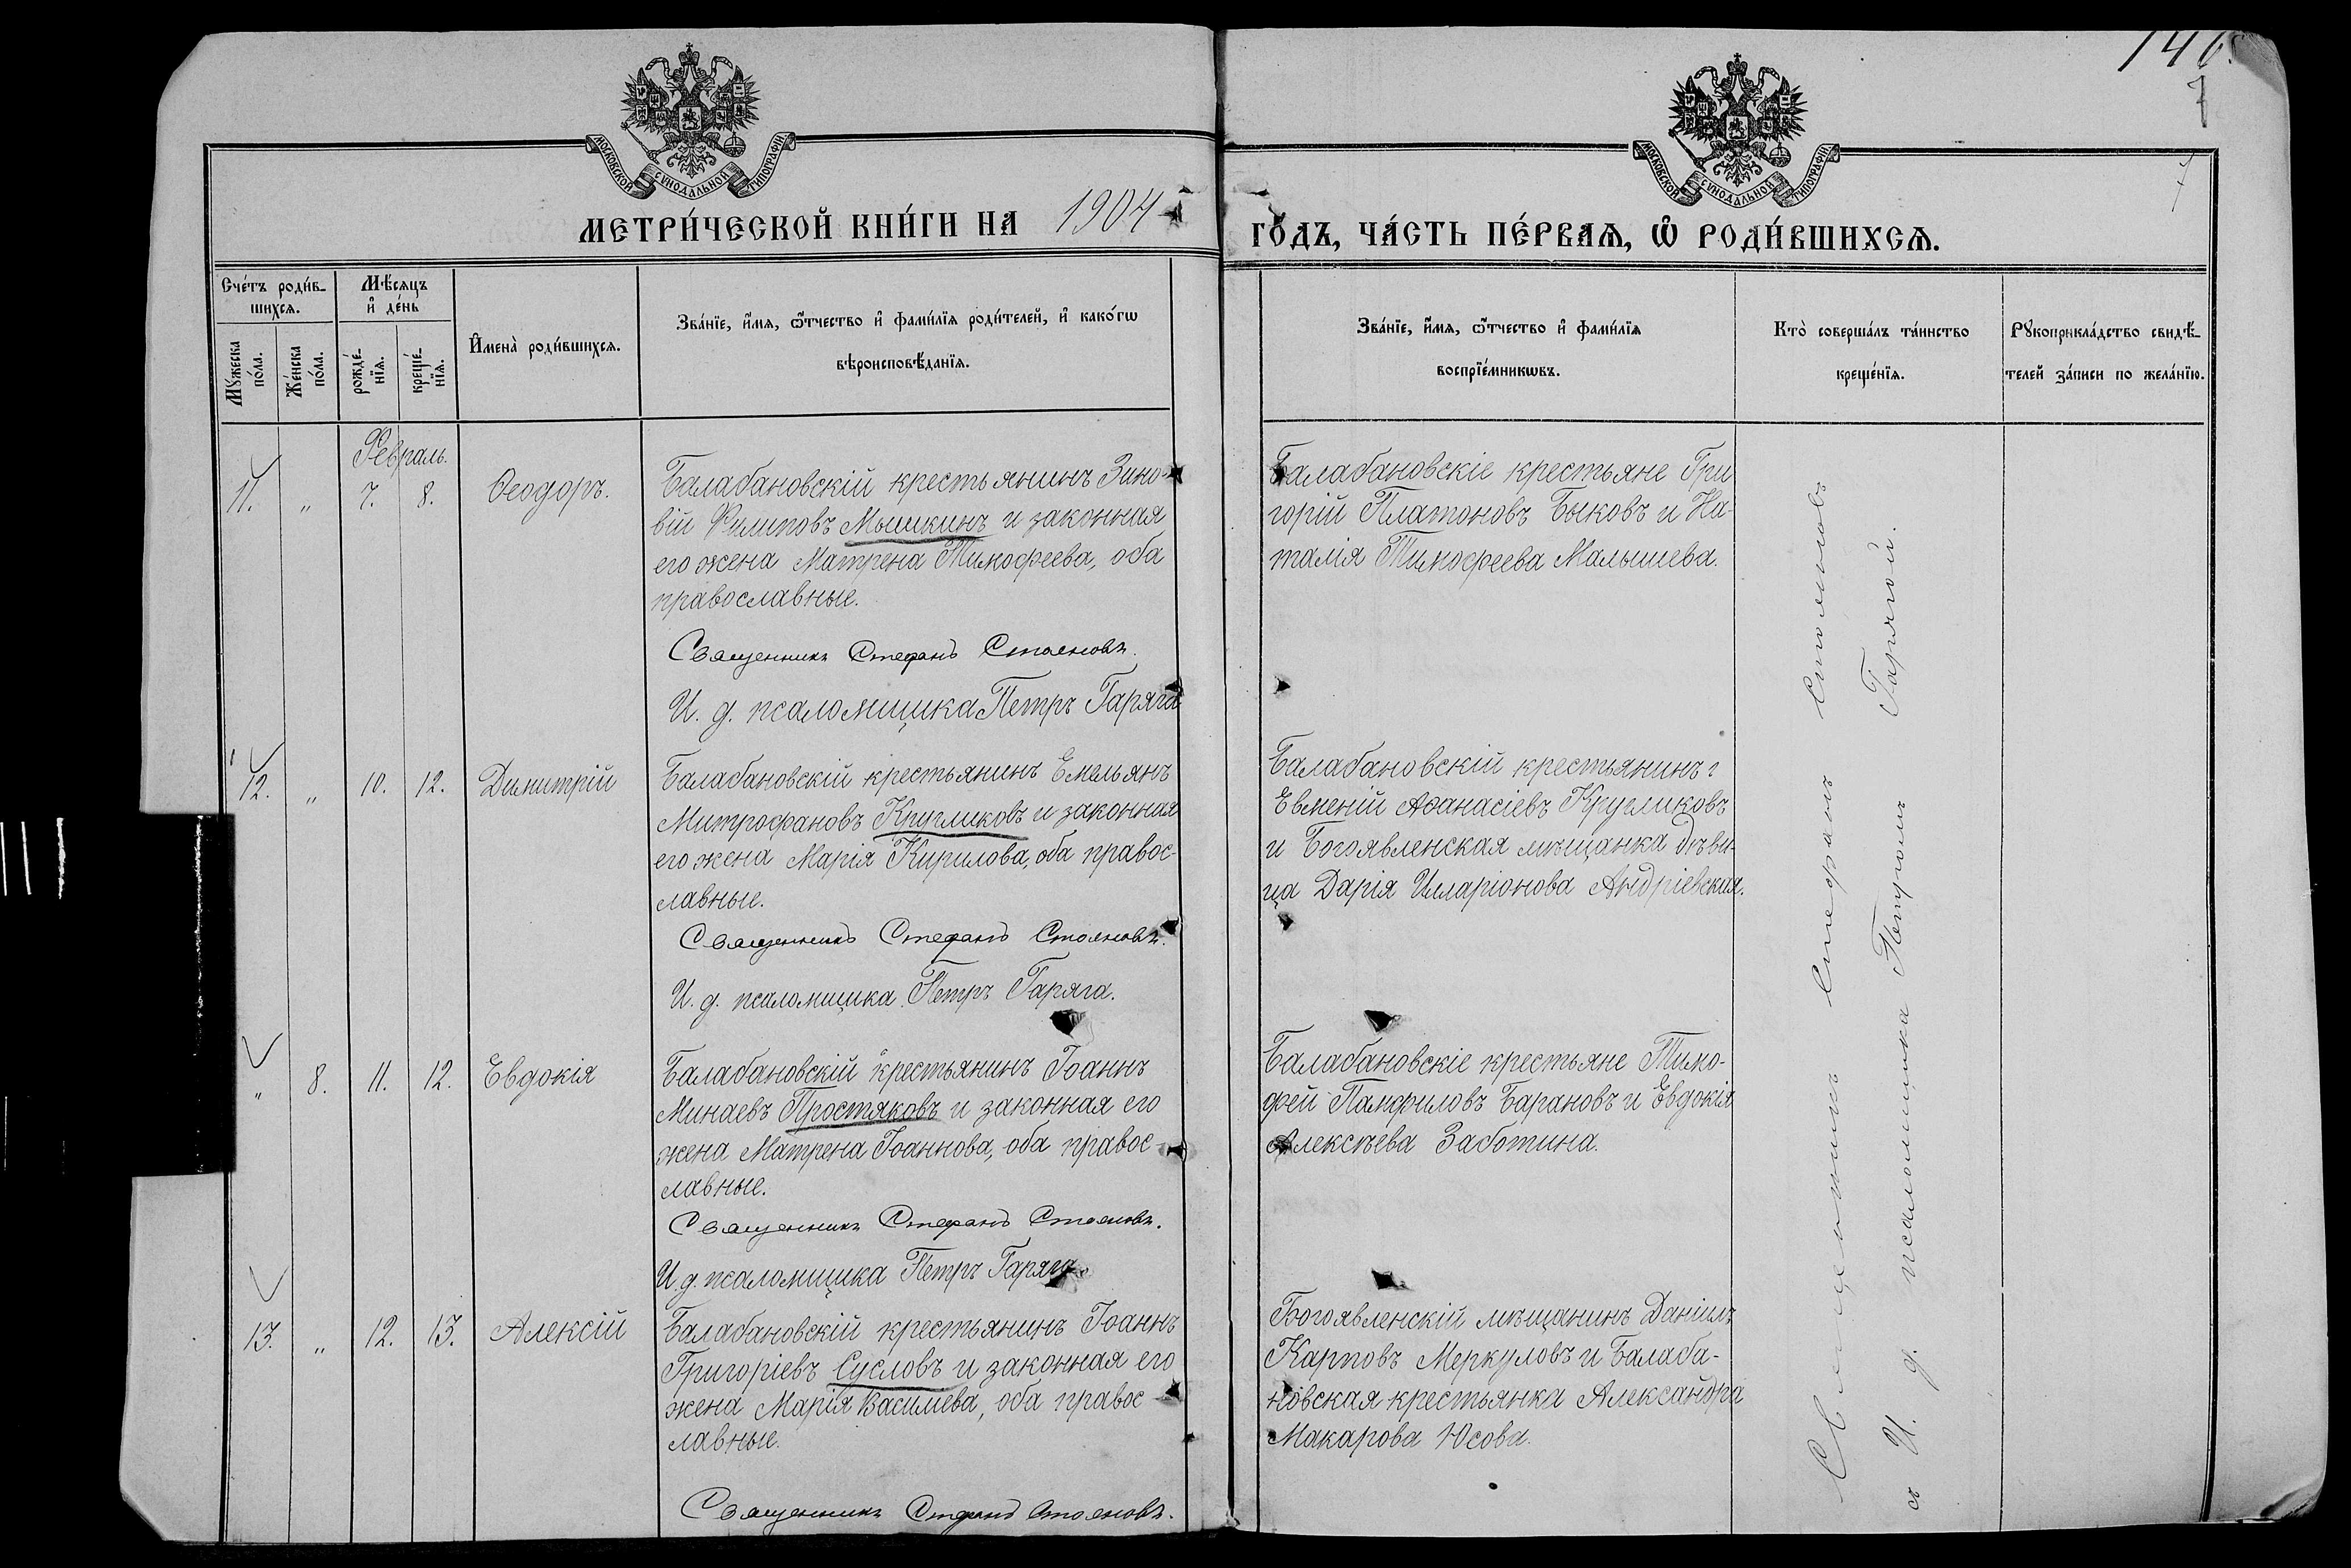 146.
7
МОСКОВСКОЙ СѴНОДАЛЬНОЙ ТИПОГРАФІИ
МОСКОВСКОЙ СѴНОДАЛЬНОЙ ТИПОГРАФІИ
МЕТРИ́ЧЕСКОЙ КНИ́ГИ НА 1904 ГО́ДЪ, ЧА́СТЬ ПЕ́РВАѦ, Ѡ҆ РОДИ́ВШИХСѦ.
Сче́тъ роди́в-
шихсѧ.
Мꙋ́жеска
по́ла.
Же́нска
по́ла.
Мѣ́сѧцъ
и҆ де́нь
рожде́-
нїѧ.
креще́-
нїѧ.
И҆мена̀ роди́вшихсѧ.
Зва́нїе, и҆́мѧ, ѻ҆́тчество и҆ фами́лїѧ роди́телей, и҆ како́гѡ
вѣроисповѣ́данїѧ.
Зва́нїе, и҆́мѧ, ѻ҆́тчество и҆ фами́лїѧ
воспрїе́мникѡвъ.
Кто̀ соверша́лъ та́инство
креще́нїѧ.
Рꙋкоприкла́дство свидѣ́-
телей за́писи по жела́нїю.
Февраль.
11. „ 7. 8. Ѳеодоръ.
Балабановскій крестьянинъ Зино-
вій Филиповъ Мышкинъ и законная
его жена Матрена Тимофеева, оба
православные.
Священникъ Стефанъ Стояновъ.
И. д. псаломщика Петръ Гаряга
Балабановскіе крестьяне Гри
горій Платоновъ Быковъ и На-
талія Тимофеева Малышева.
12. „ 10. 12. Димитрій
Балабановскій крестьянинъ Емельянъ
Митрофановъ Кругликовъ и законная
его жена Марія Кирилова, оба правос-
лавные.
Священникъ Стефанъ Стояновъ.
И. д. псаломщика Петръ Гаряга.
Балабановскій крестьянинъ
Евменій Аѳанасіевъ Кругликовъ
и Богоявленская мѣщанка дѣви-
ца Дарія Илларіонова Андріевская.
„ 8. 11. 12. Евдокія
Балабановскій крестьянинъ Іоаннъ
Минаевъ Простяковъ и законная его
жена Матрена Іоаннова, оба правос-
лавные.
Священникъ Стефанъ Стояновъ.
И. д. псаломщика Петръ Гаряга.
Балабановскіе крестьяне Тимо-
фей Памфиловъ Барановъ и Евдокія
Алексѣева Заботина.
13. „ 12. 13. Алексій
Балабановскій крестьянинъ Іоаннъ
Григоріевъ Сусловъ и законная его
жена Марія Василиева, оба правос-
лавные.
Священникъ Стефанъ Стояновъ.
Богоявленскій мѣщанинъ Даніилъ
Карповъ Меркуловъ и Балаба-
новская крестьянка Александра
Макарова Юсова.
Священникъ Стефанъ Стояновъ
съ И. д. псаломщика Петромъ Гарягой.